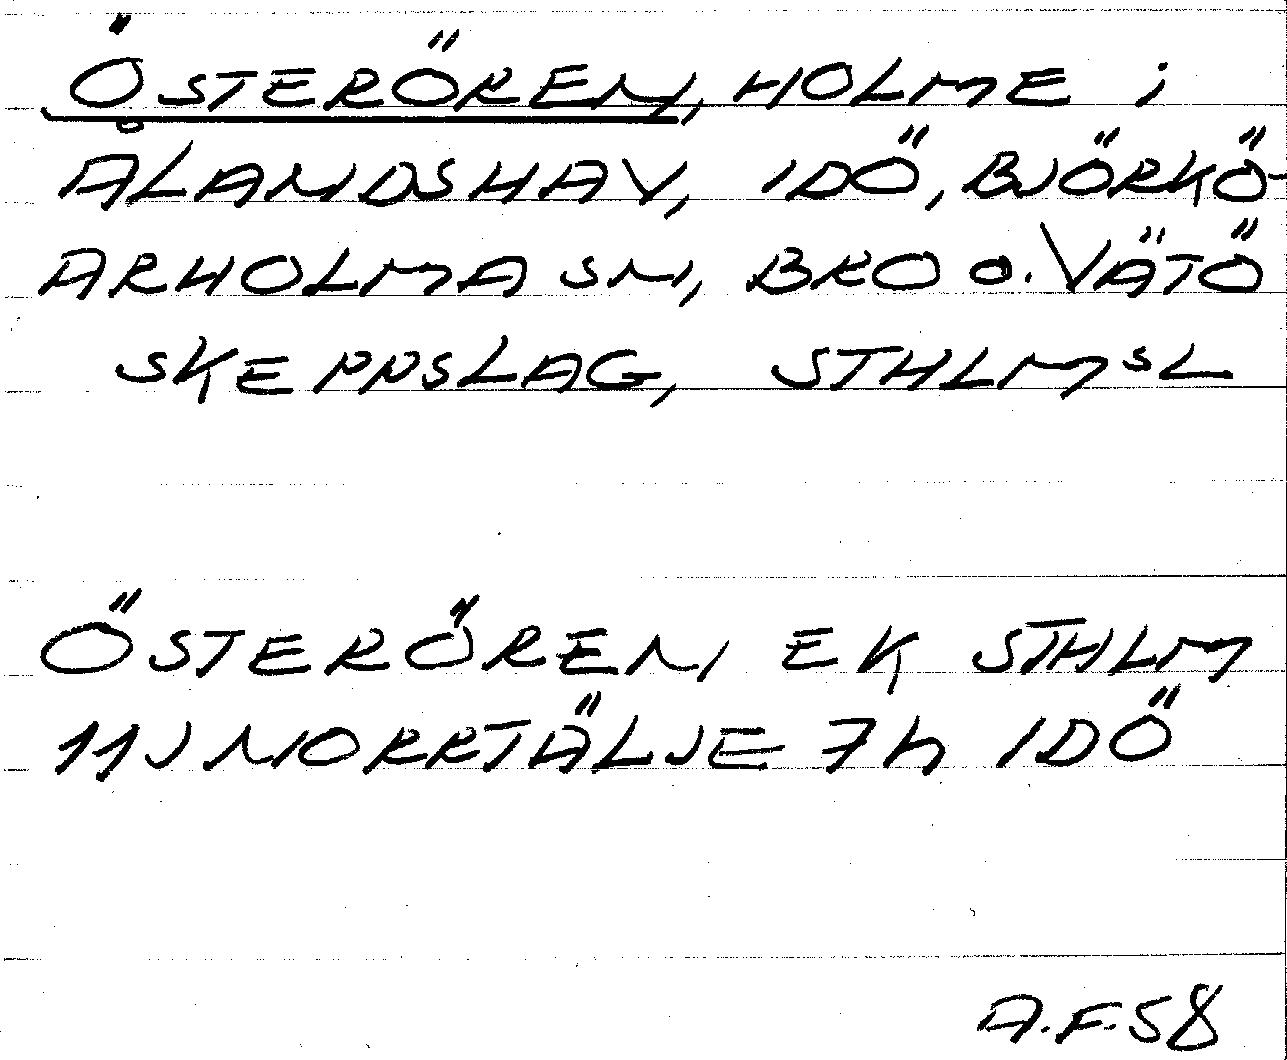 ÖSTERÖREN, HOLME i
ÅLANDSHAV, IDÖ, BJÖRKÖ-
ARHOLMA SN, BRO O. VÄTÖ
SKEPPSLAG, STHLMSL
ÖSTERÖREN EK STHLM
11J NORRTÄLJE 7h IDÖ
A.F.58